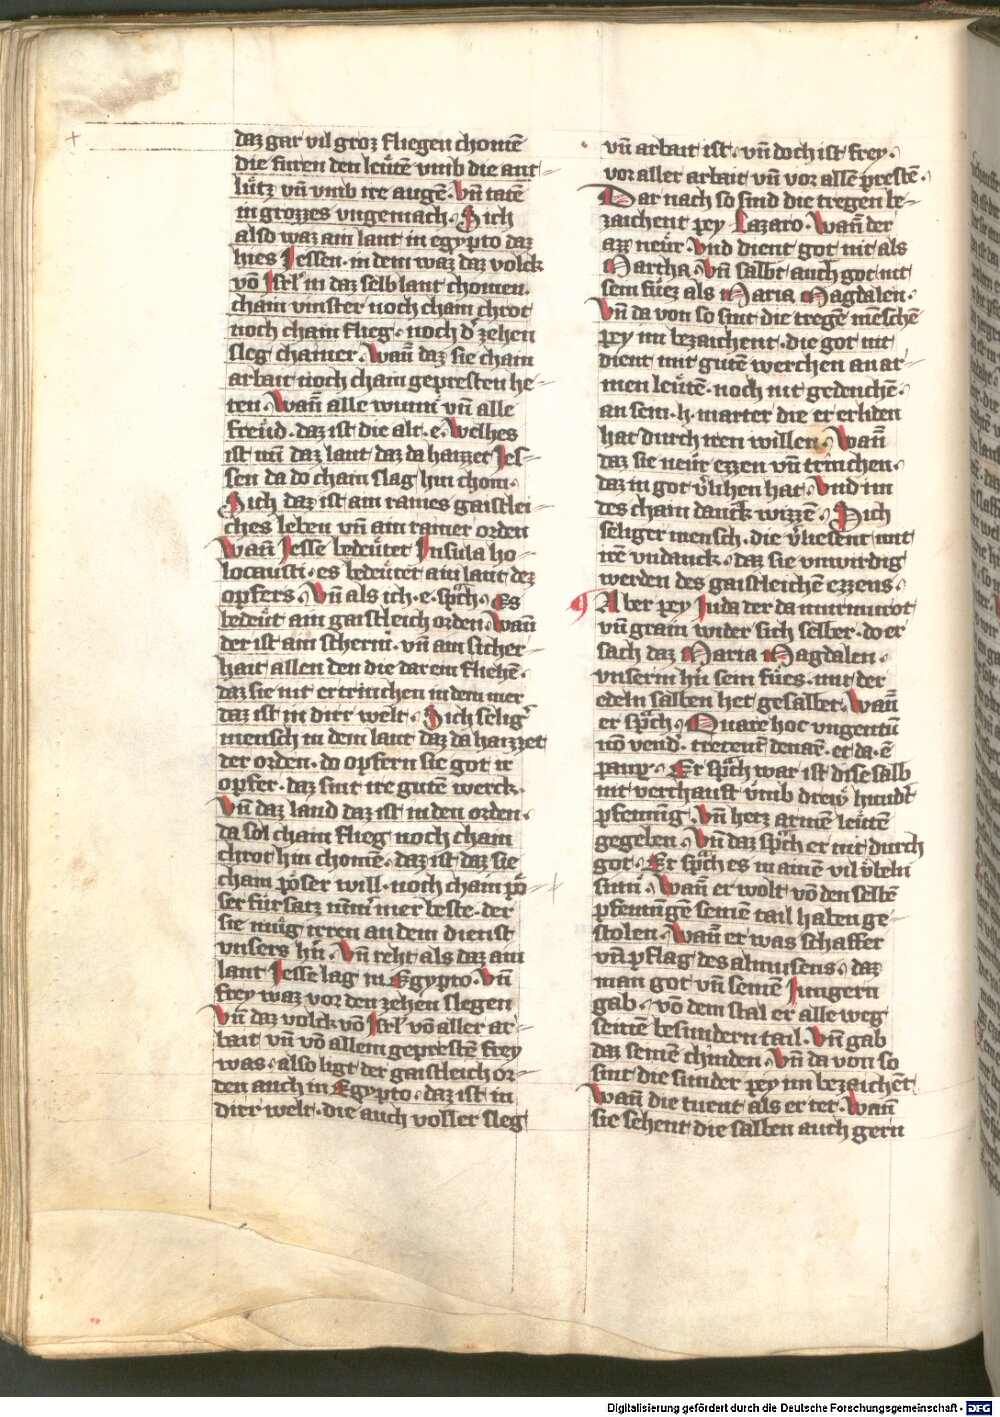 daz gar vil groz fliegen chomē
die furen den leutē vmb die ant
lütz vñ vmb ire augē. Vñ tatē
in grozzes vngemach. Sich
also waz ain lant in egypto daz
hies Jessen. in dem waz daz volck
vō Isrl' in daz selb lant chomen.
cham vinster noch cham chrot
noch cham flieg. noch d' zehen
sleg chainer. Wañ daz sie cham
arbait noch cham gepresten he-
ten. Wañ alle wunn vñ alle
freud. daz ist die alt. e. Welhes
ist nu daz lant daz da haizzet Jes-
sen da do cham slag hin chom.
Sich daz ist ain raines gaistlei-
ches leben vñ ain rainer orden
Wañ Jesse bedeutet Insula ho-
locausti. es bedeutet ain lant dez
opfers. Vñ als ich. e. sprach. Es
bedeut ain gaistleich orden. Wañ
der ist ain scherm. vñ ain sicher-
hait allen den die dar ein fliehē.
daz sie nit ertrinchen in dem mer
daz ist in dirr welt. Sich selig'
mensch in dem lant daz da haizzet
der orden. do opfern sie got ir
opfer. daz sint ire gutē werck.
Vñ daz land daz ist in den orden.
da sol cham flieg noch cham
chrot hin chomē. daz ist daz sie
cham pöser will. noch cham pö-
ser fürsatz nimmer beste. der
sie müg irren an dem dienst
vnsers hñ. Vñ reht als daz ain
lant Jesse lag in Egypto. Vñ
frey waz vor den zehen slegen
Vñ daz volck vō Isrl' vō aller ar-
bait vñ vō allem geprestē frey
was. also ligt der gaistleich or-
den auch in Egypto. daz ist in
dirr welt. die auch voller sleg
vñ arbait ist. vñ doch ist frey.
vor aller arbait vñ vor allē prestē.
Dar nach so sind die tregen be-
zaichent pey Lazaro. Wañ der
azz neur. Vnd dient got nit als
Martha. Vñ salbt auch got nit
sein füez als Maria Magdalen.
Vñ da von so sint die tregē menschē
pey im bezaichent. die got nit
dient mit gutē werchen an ar-
men leutē. noch nit gedenchē.
an sein. h. marter die er erliden
hat durch iren willen. Wañ
daz sie neur ezzen vñ trinchen.
daz in got v'lihen hat. Vnd im
des cham danck wizzē. Sich
seliger mensch. die v'liesent mit
irē vndanck. daz sie vnwirdig
werden des gaistleichē ezzens.
Aber pey Juda der da murmurot
vñ grain wider sich selber. do er
sach daz Maria Magdalen.
vnserm hñ sein fües. mit der
edeln salben het gesalbet. Wañ
er sprach. Quare hoc vngentū
nō vend'. trecent' denar'. et da. ē
paup'. Er sprach war ist dise salb
nit verchauft vmb drew hund't
pfenning. Vñ hetz armē leutē
gegeben. Vñ daz sprach er nit durch
got. Er sprach es in ainē vil vbeln
sinn. Wañ er wolt vō den selbē
pfenningē seinē tail haben ge-
stolen. Wañ er was schaffer
vñ pflag des almusens. daz
man got vñ seinē Jungern
gab. vō dem stal er alle weg
seinē besundern tail. Vñ gab
daz seinē chinden. Vñ da von so
sint die sunder pey im bezaichēt
Wañ die tuent als er tet. Wañ
sie sehent die salben auch gern
Digitalisierung gefördert durch die Deutsche Forschungsgemeinschaft - DFG